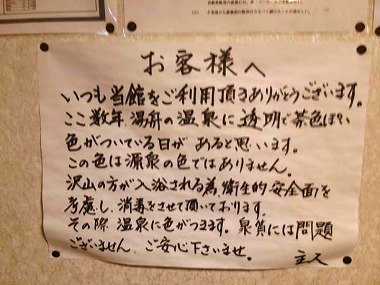 お客様へ
いつも当館をご利用頂きありがとうございます。
ここ数年、湯舟の温泉に透明で茶色ぽい
色がついている日があると思います。
この色は源泉の色ではありません。
沢山の方が入浴される為、衛生的安全面を
考慮し、消毒をさせて頂いております。
その際、温泉に色がつきます。泉質には問題
ございません、ご安心下さいませ。
主人